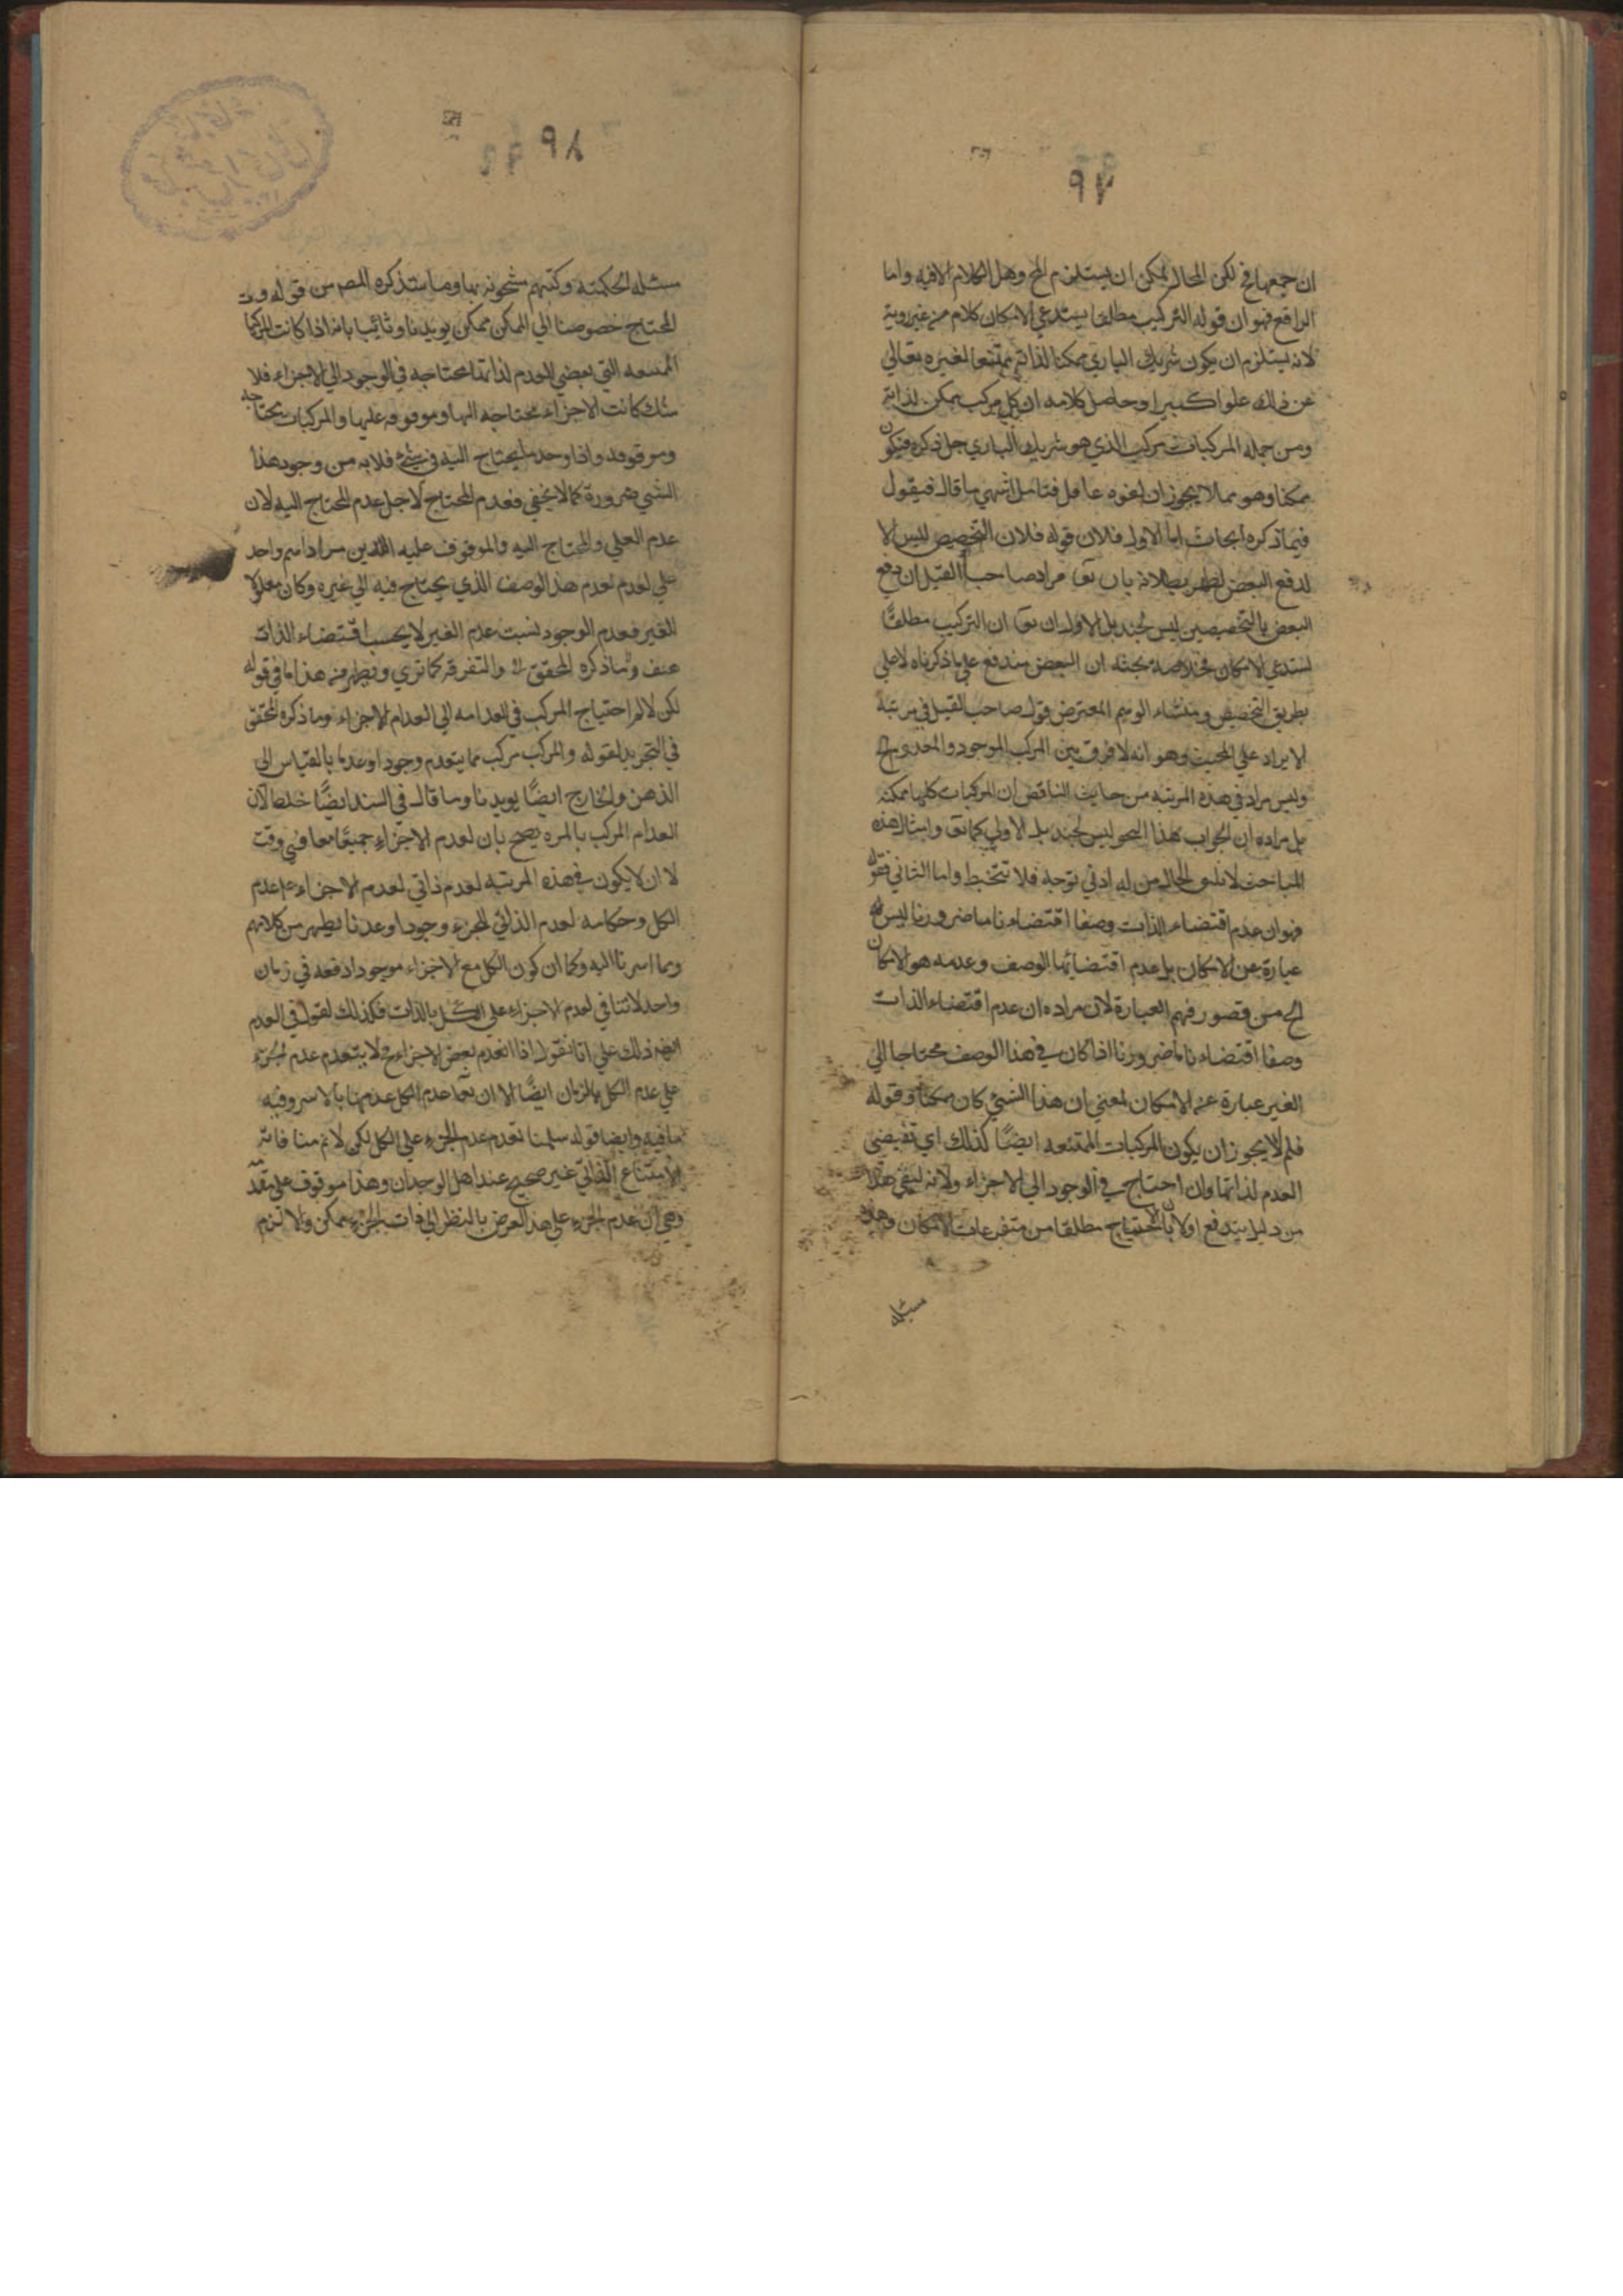 ٩٧
ان جميعها مح لكن المحال يمكن ان يستلزم المح وهل الكلام الا فيه واما
الرافع فهو ان قوله التركيب مطلقا يستدعي الامكان كلام من غير روية
لانه يستلزم ان يكون شريك الباري ممكنا لذاته ممتنعا لغيره تعالى
عن ذلك علوا كبيرا وحاصل كلامه ان كل مركب ممكن لذاته
ومن جملة المركبات مركب الذي هو شريك الباري جل ذكره فيكون
ممكنا وهو مما لا يجوز ان تفوه عاقل فتامل انتهي ما قال فيقول
فيما ذكره ابحاث اما الاول فلان قوله فلان التخصيص ليس الا
لدفع البعض بطلانه بان مراد صاحب القيل ان دفع
البعض بالتخصيص ليس بل الاول ان ان التركيب مطلقا
يستدعي الامكان فخلاصة بحثه ان البعض مندفع علي ما ذكرناه لا علي
بطريق التخصيص ومنشاء الوهم المعترض قول صاحب القيل في مرتبة
الايراد علي المجيب وهو انه لا فرق بين المركب الموجود والمعدوم
وليس مراد في هذه المرتبة من جانب الناقض ان المركبات كلها ممكنة
بل مراده ان الجواب بهذا النحو ليس بل الاولي كما وامثال هذه
المباحث لا الحال من له ادني توجه فلا تتخبط واما الثاني فقوله
فهو ان عدم اقتضاء الذات وصفا اقتضاء تاما ضروريا ليس
عبارة عن الامكان بل عدم اقتضائها الوصف وعدمه هو الامكان
الخ من قصور فهم العبارة لان مراده ان عدم اقتضاء الذات
وصفا اقتضاء تاما ضروريا اذا كان في هذا الوصف محتاجا الي
الغير عبارة عن الامكان لمعني ان هذا الشيئ كان ممكنا وقوله
فلم لا يجوز ان يكون المركبات الممتنعه ايضًا كذلك اي تقتضي
العدم لذاتها وان احتاج في الوجود الي الاجزاء ولانه لنفي هذا
من دليل يندفع اولا بان الاحتياج مطلقا من متفرعات الامكان وهذه
مسئلة
٨٩
مسئله الحكمته وكتبهم مشحونة بها وما ستذكره المص من قوله
المحتاج خصوصا الي الممكن ممكن يويدنا وثانيا بانه اذا كانت المركبات
الممتنعه التي تقتضي العدم لذاتها محتاجه في الوجود الي الاجزاء فلا
شك كانت الاجزاء محتاجه اليها وموقوفه عليها والمركبات محتاجه
وموقوفه واذا وجد ما يحتاج اليه في شيئ فلا بد من وجود هذا
الشي ضرورة كما لا يخفي فعدم المحتاج لاجل عدم المحتاج اليه لان
عدم العلي والمحتاج اليه والموقوف عليه الذين مراد اسم واحد
علي العدم لعدم هذا الوصف الذي يحتاج فيه الي غيره وكان معلولا
للغير فعدم الوجود لسبب عدم الغير لا بحسب اقتضاء الذات
وما ذكره المحقق والتفرقه كما تري ويظهر منه هذا ما في قوله
لكن لا احتياج المركب في انعدامه الي انعدام الاجزاء وما ذكره المحقق
في التجريد لقوله والمركب مركب مما يتقدم وجودا وعدما بالقياس الي
الذهن والخارج ايضًا يويدنا وما قال في السند ايضًا لان
انعدام المركب بالمره يصح بان تعدم الاجزاء جميعًا معا في وقت
لا ان لا يكون في هذه المرتبة تقدم ذاتي لعدم الاجزاء علي عدم
الكل وحكامه تقدم الذاتي الجزء وجودا وعدما يظهر من كلامهم
ومما اشرنا اليه وكما ان كون الكل مع الاجزاء موجودا دفعة في زمان
واحد لا تنافي تقدم الاجزاء علي الكل بالذات فكذلك نقول في العدم
ذلك علي انا نقول اذا انعدم بعض الاجزاء فح لا يتقدم عدم الجزء
علي عدم الكل بالزمان ايضًا الا ان عدم الكل عدمها بالاسر وفيه
ما فيه وايضا قوله سلمنا تقدم عدم الجزء علي الكل لكن لا نم منافاته
الامتناع الذاتي غير صحيح عند اهل الوجدان وهذا موقوف علي مقدمة
وهي ان عدم الجزء علي هذا الفرض بالنظر الي ذات الجزء ممكن والا لزم